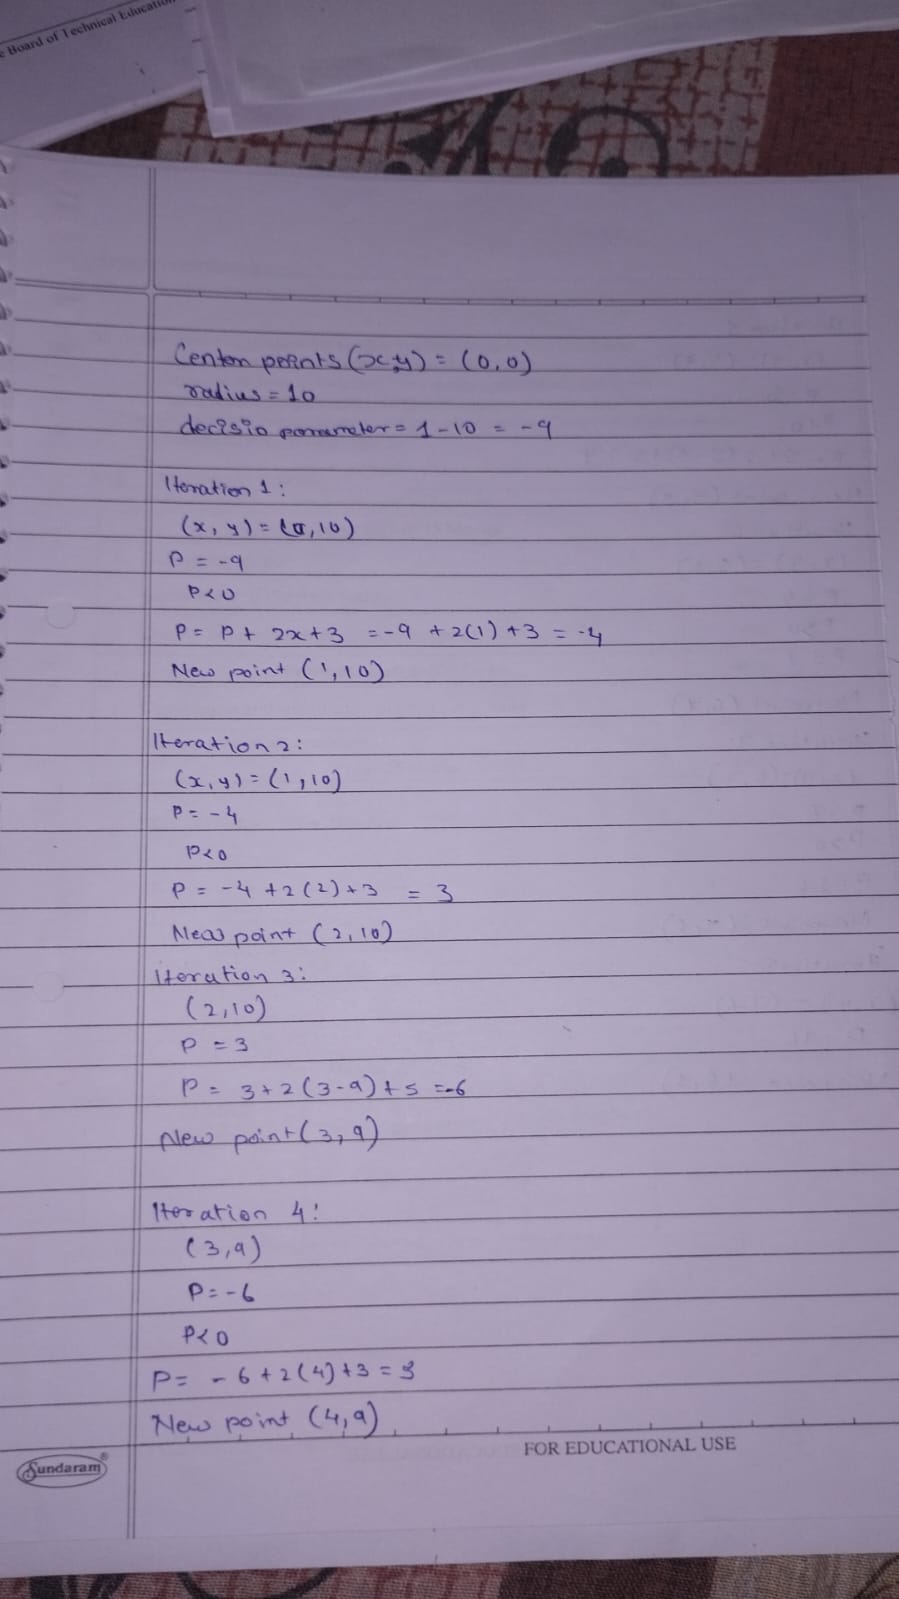 e Board of Technical Education
Center points (x,y) = (0,0)
radius = 10
decisio parameter = 1-10 = -9
Iteration 1:
(x, y) = (0,10)
P = -9
P<0
P = P + 2x+3 = -9 +2(1) +3 = -4
New point (1,10)
Iteration 2:
(x,y) = (1,10)
P = -4
P<0
P = -4 +2(2)+3 = 3
New point (2,10)
Iteration 3:
(2,10)
P = 3
P = 3+2(3-9)+5 =-6
New point (3,9)
Iteration 4:
(3,9)
P=-6
P<0
P= -6+2(4)+3 =
New point (4,9)
FOR EDUCATIONAL USE
Sundaram®